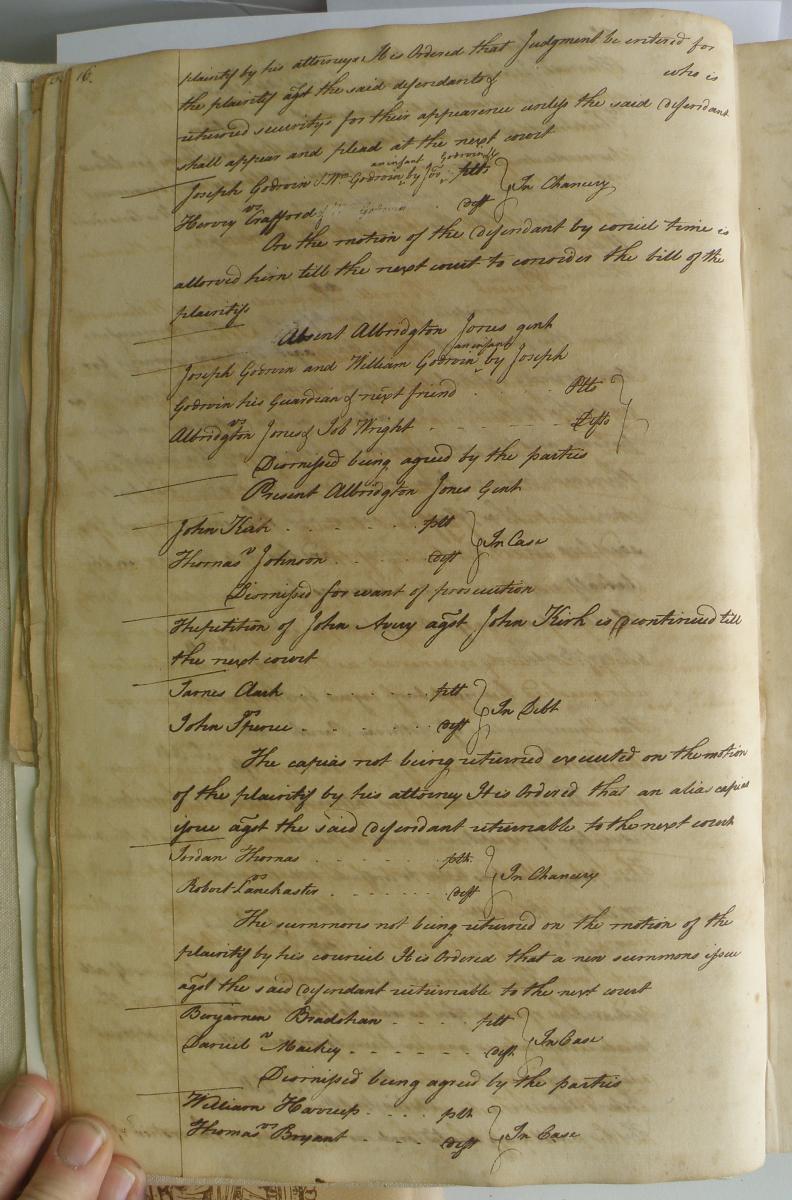 16.
plaintif by his attorneys It is Ordered that Judgment be entered for
the plaintif agst the said defendants & who is
returned securitys for their appearence unless the said Defendant
shall appear and plead at the next court
an infant Godwin
Joseph Godwin & Wm Godwin by Jos plts
vs In Chancery
Henry Crafford deft
On the motion of the Defendant by councel time is
allowed him till the next court to concider the bill of the
plaintifs
Absent Albridgton Jones gent
an infant
Joseph Godwin and William Godwin by Joseph
Godwin his Guardian & next friend Plts
vs
Albridgton Jones & Job Wright Defts
Dismissed being agreed by the parties
Present Albridgton Jones Gent
John Kirk plt
vs In Case
Thomas Johnson deft
Dismissed for want of prosecution
The petition of John Avery agst John Kirk is continued till
the next court
James Clark plt
vs In Debt
John Spence deft
The capias not being returned executed on the motion
of the plaintif by his attorney It is Ordered that an alias capias
issue agst the said Defendant returnable to the next court
Jordan Thomas plt
vs In Chancery
Robert Lanchaster deft
The summons not being returned on the motion of the
plaintif by his councel It is Ordered that a new summons issue
agst the said Defendant returnable to the next court
Benjamen Bradshaw plt
vs In Case
Daniel Mackey deft
Dismissed being agreed by the parties
William Harriss plt
vs In Case
Thomas Bryant deft